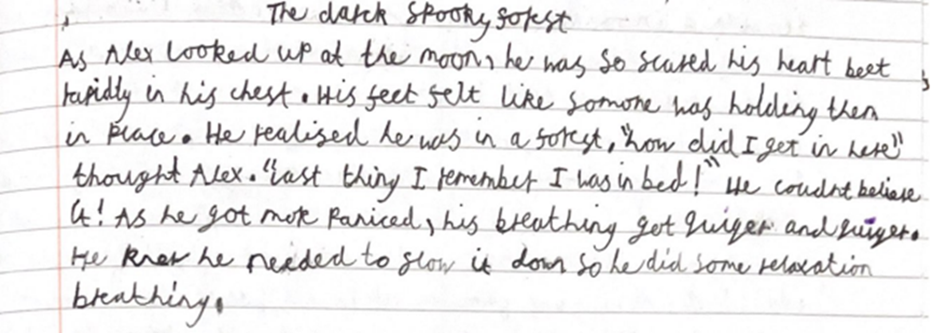 The darck spooky forest
As Alex looked up at the moon, he was so scared his heart beet
rapidly in his chest. His feet felt like somone was holding then
in place. He realised he was in a forest, "how did I get in here"
thought Alex. "Last thing I remember I was in bed!" He coudnt believe
it! As he got more paniced, his breathing got quiger and quiger.
He knew he needed to slow it down so he did some relaxation
breathing.